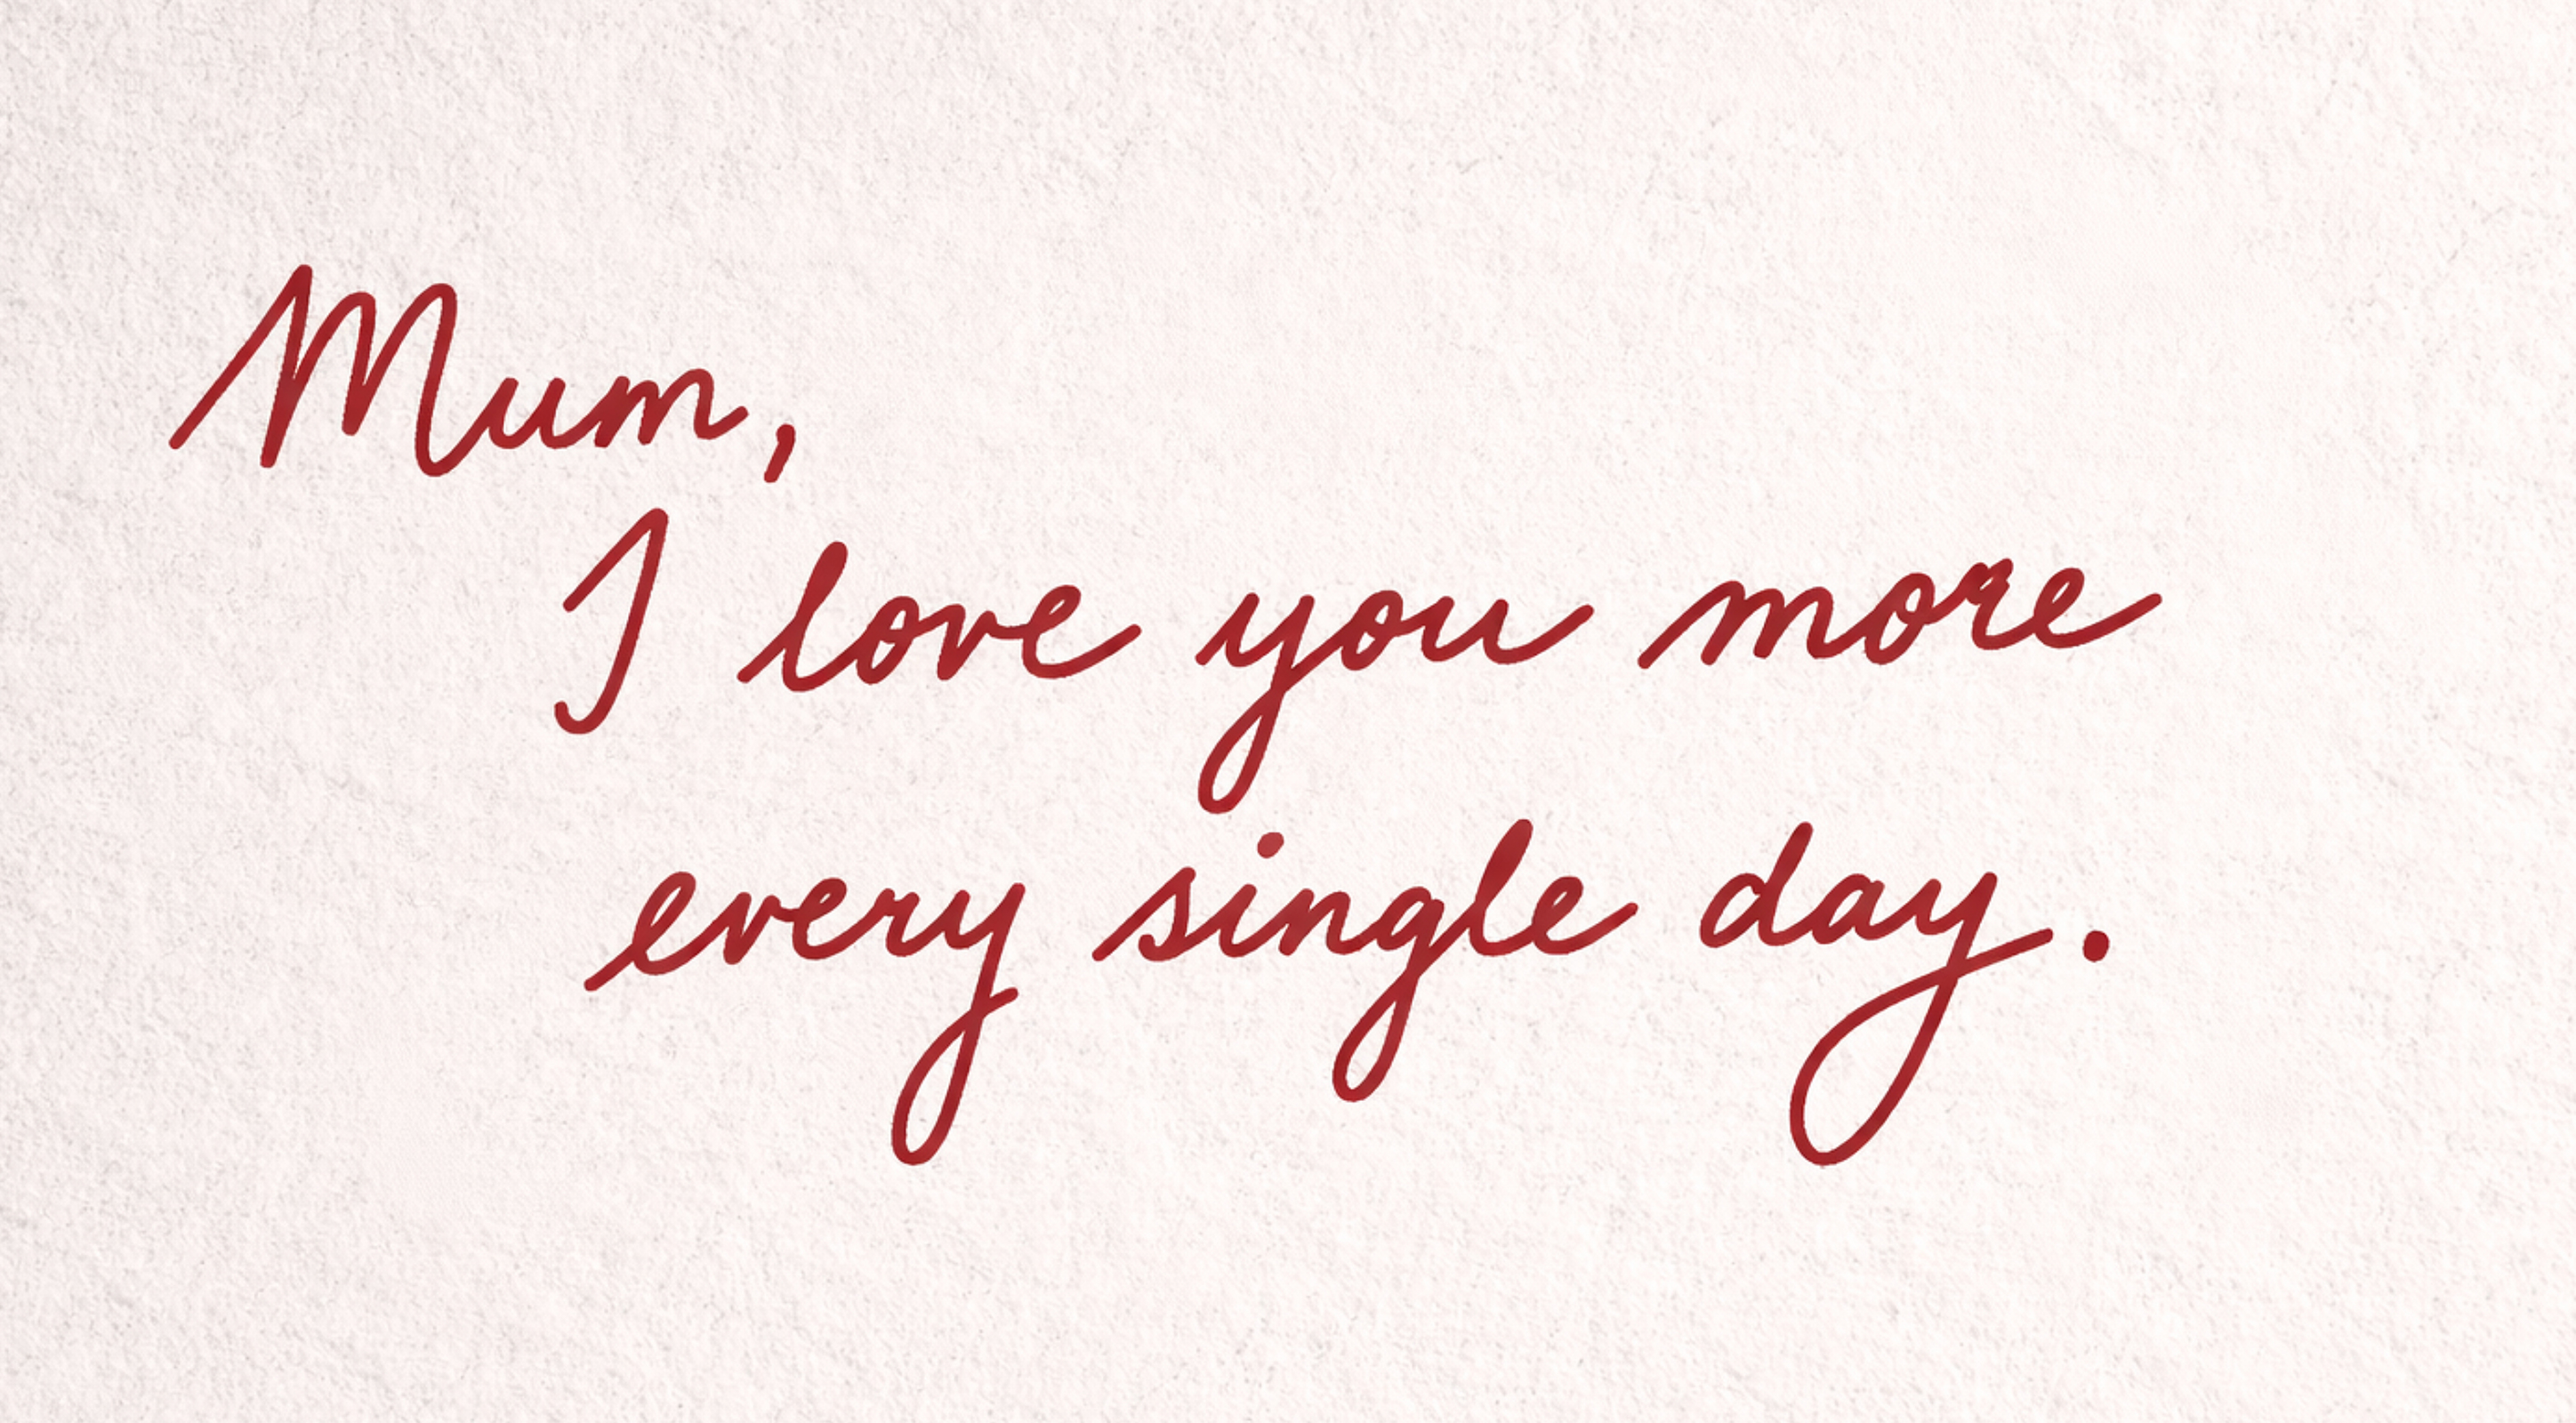 Mum,
I love you more
every single day.